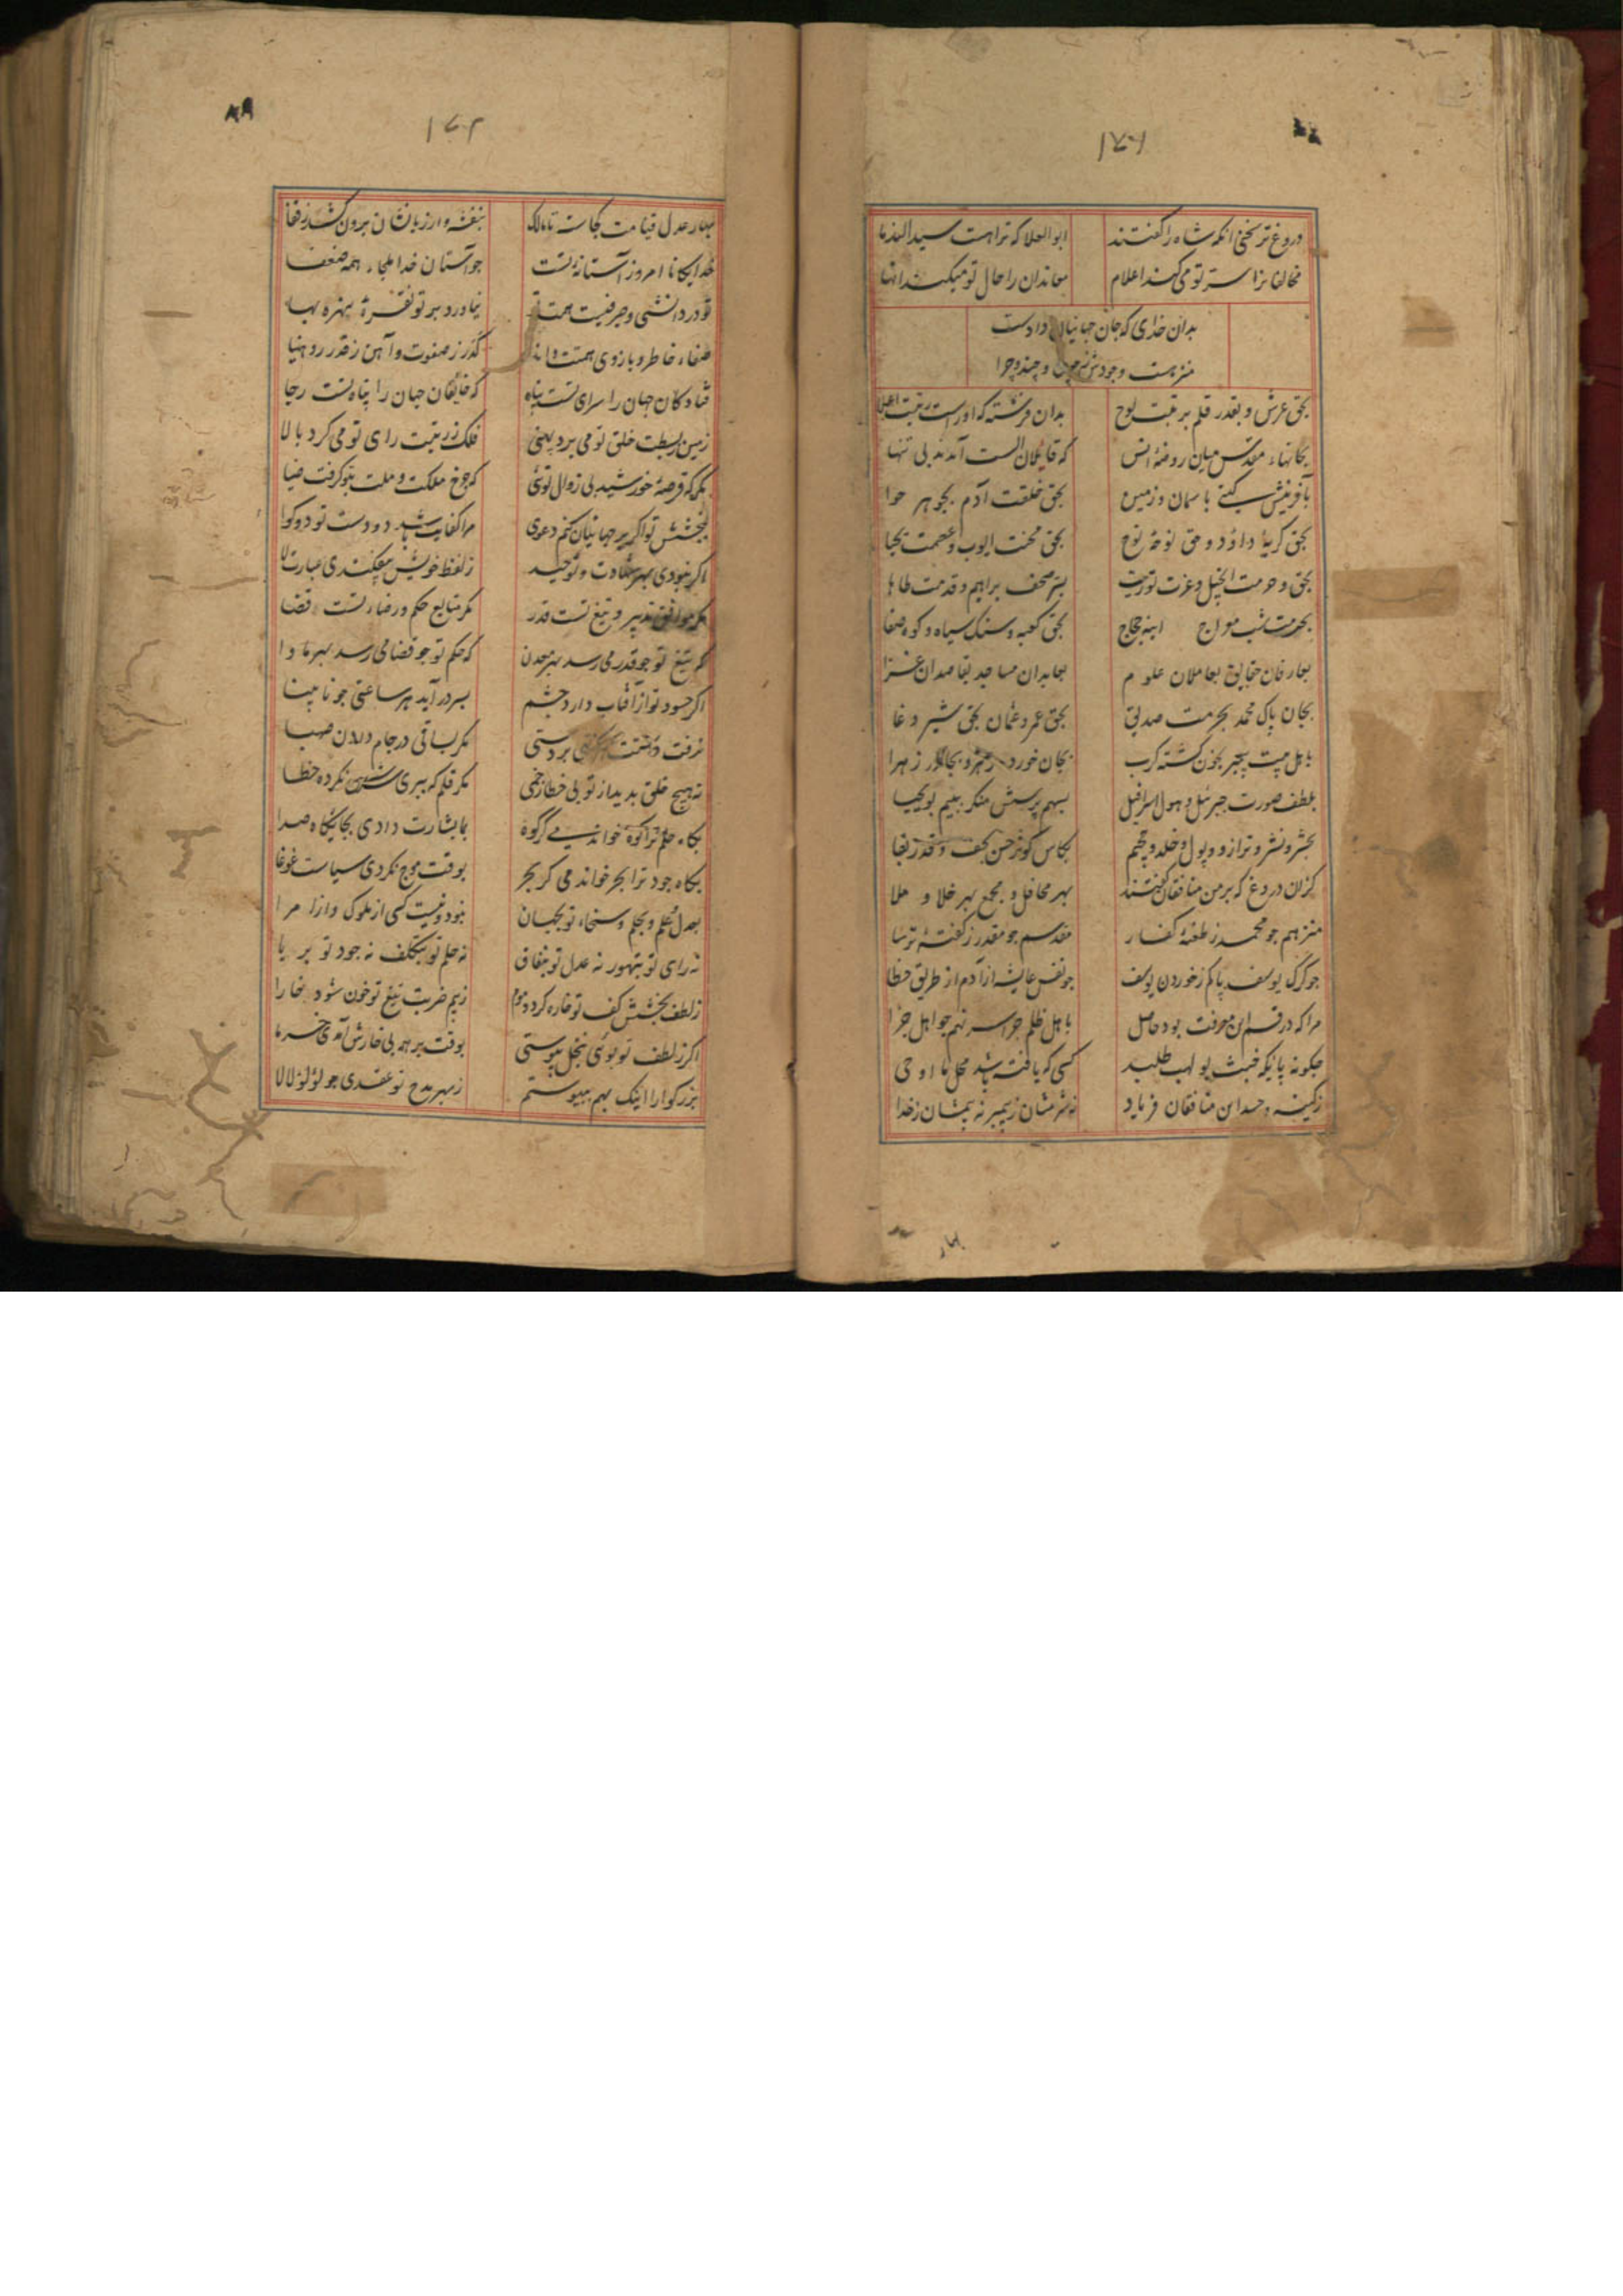 ۱۷۱
دروغ‌تر سخنی آنکه شاه را گفتند ابوالعلا که ترا هست سید الندما
مخالفانرا سر تو می کند اعلام معاندان را حال تو میکند انها
بدان خدای که جان جهانیان دادست
منزهست وجودش ز چون و چند و چرا
بحق عرش و بقدر قلم برتبت لوح بدان فرشته که او راست رتبت اعلی
بجانهاء مقدس میان روضهٔ انس که قایلان الست آمدند بی تنها
بآفرینش گیتی باسمان و زمین بحق خلقت آدم بجوهر حوا
بحق گریهٔ داؤد و حق نوحهٔ نوح بحق محنت ایوب و عصمت یحیا
بحق و حرمت انجیل و عزت توریت بسر صحف براهیم و قدمت طاها
بحرمت شب معراج بحق کعبه و سنک سیاه و کوه صفا
بعارفان حقایق بعاملان علوم بعابدان مساجد بقاصدان غزا
بجان پاک محمد بحرمت صدیق بحق عمر و عثمان بحق شیر وغا
باهل بیت پیمبر بخون کشته کرب بجان خورده زهر و زهرا
بلطف صورت جبرئیل و هول اسرافیل بسهم پرسش منکر ببیم
بحشر و نشر و ترازو و پول و خلد و جحیم بکاس کوثر حسن بحق و قدر بقا
کزان دروغ که بر من منافقان گفتند بهر محافل و مجمع بهر خلا و ملا
منزهم چو محمد ز طعنهٔ کفار مقدسم چو مقدر ز گفتهٔ ترسا
چو گرگ یوسف پاکم ز خوردن یوسف چو نفس عایشه از آدم از طریق خطا
مرا که در قسم این معرفت بود حاصل باهل ظلم چرا سر نهم چو اهل جزا
چگونه پایگه خبث بولهب طلبد کسی که یافته باشد محل ما اوحی
ز کینه و حسد این منافقان فریاد نه شرمشان ز پیمبر نه بیمشان ز خدا
بهار
۱۷۲
بهار عدل قیامت کجاست تا مالک بنفشه وار زبانشان برون کشد ز قفا
خدایگانا امروز آستانهٔ تست چو آستان خدا ملجاء همه ضعفا
تو در دانشی و صیرفیت همت تو نیاورد بر تو نقرهٔ بنهره بها
صفاء خاطر و بازوی همتت گذر ز صفوت و آهن ز قدر رویینا
فتادکان جهان را سرای تست پناه که خایفان جهان را پناه تست رجا
زمین ز بسطت خلق تو می برد پهنی فلک ز رتبت رای تو می گرد بالا
مگر که قرصهٔ خورشید بی زوال توئی که چرخ مملکت و ملت بتو گرفت ضیا
ببخشش تو اگر بر جهانیان کنم دعوی مرا کفایت باشد دو دست تو دو گوا
اگر نبودی بهر شهادت و توحید ز لفظ خویش بیفکندی عبارت لا
مگر موافق تدبیر و تیغ تست قدر مگر متابع حکم و رضاء تست قضا
که تیغ تو چو قدر می رسد بهر معدن که حکم تو چو قضا می رسد بهر ماوا
اگر حسود تو از آفتاب دارد چشم بسر درآید هر ساعتی چو نابینا
نرفت بر دستی مگر بساقی در جام دادن صهبا
نه هیچ خلق بدید از تو بی خطا زخمی مگر قلم که ببری سرش نکرده خطا
بگاه حلم ترا کوه خواندمی گر کوه ما بشارت دادی بجایگاه صدا
بگاه جود ترا بحر خواندمی گر بحر بوقت موج نکردی سیاست غوغا
بعدل و علم و بحلم و سخاء تو بجهان نبود و نیست کسی از ملوک و از امرا
نه رای تو بتهور نه عدل تو بنفاق نه حلم تو بتکلف نه جود تو بریا
ز لطف بخشش کف تو خاره گردد موم ز بیم ضربت تیغ تو خون شود خارا
اگر ز لطف تو بوئی بنخل پیوستی بوقت بر همه بی خارش آمدی خرما
بزرگوارا اینک بهم بپیوستم ز بهر مدح تو عقدی چو لؤلؤ لالا